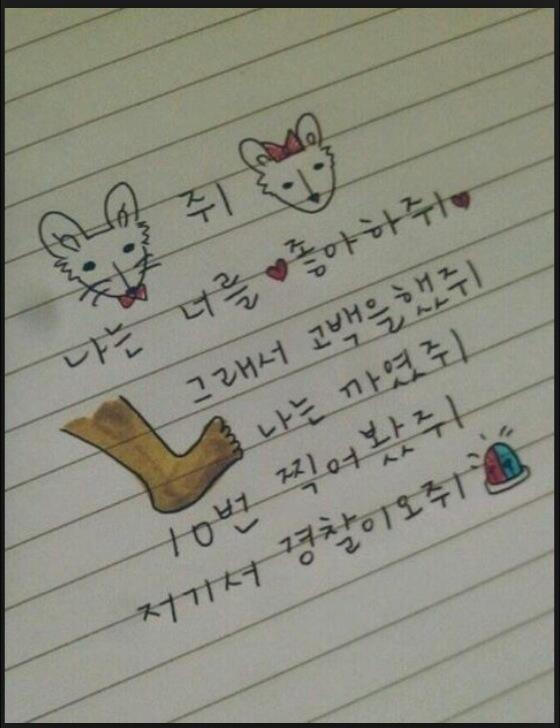 쥐
나는 너를 좋아하쥐
그래서 고백을했쥐
나는 까였쥐
10번 찍어봤쥐
저기서 경찰이오쥐